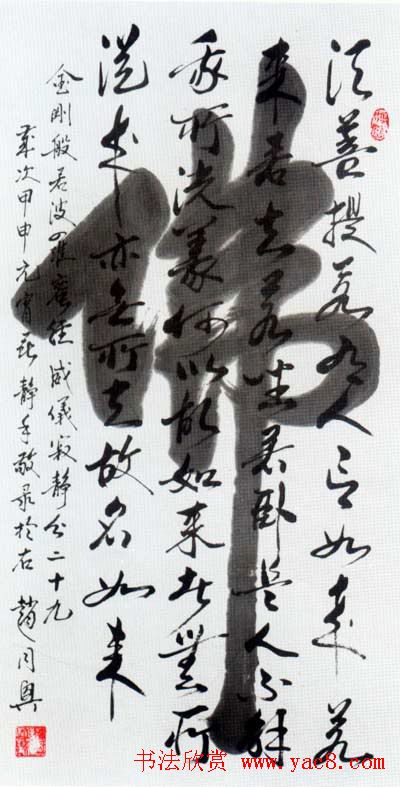 佛
須菩提若有人言如来若
来若去若坐若卧是人不解
我所説義何以故如来者無所
從来亦無所去故名如来
金剛般若波羅蜜經威儀寂静分二十九
歲次甲申元宵夜静手敬录於右 趙同興
书法欣赏 www.yac8.com